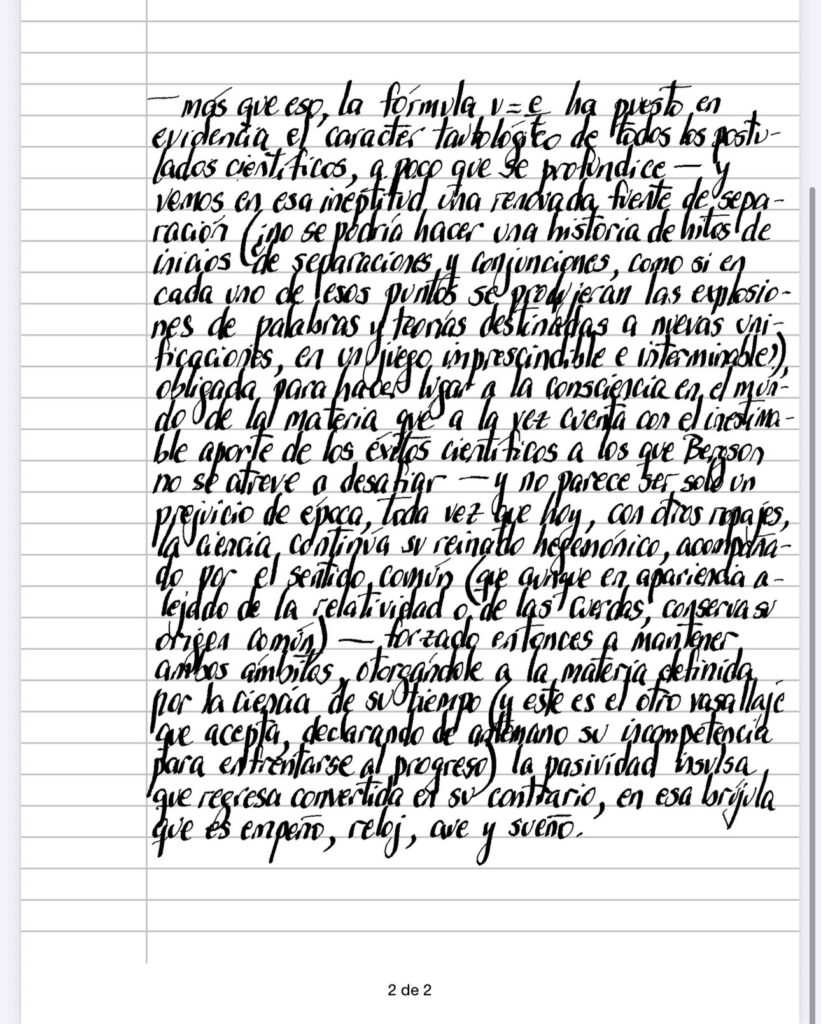 — más que eso, la fórmula v = e ha puesto en
evidencia el carácter tautológico de todos los postu-
lados científicos, a poco que se profundice — y
vemos en esa ineptitud una renovada fuente de sepa-
ración (¿no se podría hacer una historia de hitos de
inicios de separaciones y conjunciones, como si en
cada uno de esos puntos se produjeran las explosio-
nes de palabras y teorías destinadas a nuevas uni-
ficaciones, en un juego imprescindible e interminable?),
obligada para hacer lugar a la consciencia en el mun-
do de la materia que a la vez cuenta con el inestima-
ble aporte de los éxitos científicos a los que Bergson
no se atreve a desafiar — y no parece ser solo un
prejuicio de época, toda vez que hoy, con otros ropajes,
la ciencia continúa su reinado hegemónico, acompaña-
do por el sentido común (que aunque en apariencia a-
lejado de la relatividad o de las cuerdas, conserva su
origen común) — forzado entonces a mantener
ambos ámbitos, otorgándole a la materia definida
por la ciencia de su tiempo (y este es el otro vasallaje
que acepta, declarando de antemano su incompetencia
para enfrentarse al progreso) la pasividad insulsa
que regresa convertida en su contrario, en esa brújula
que es empeño, reloj, ave y sueño.
2 de 2